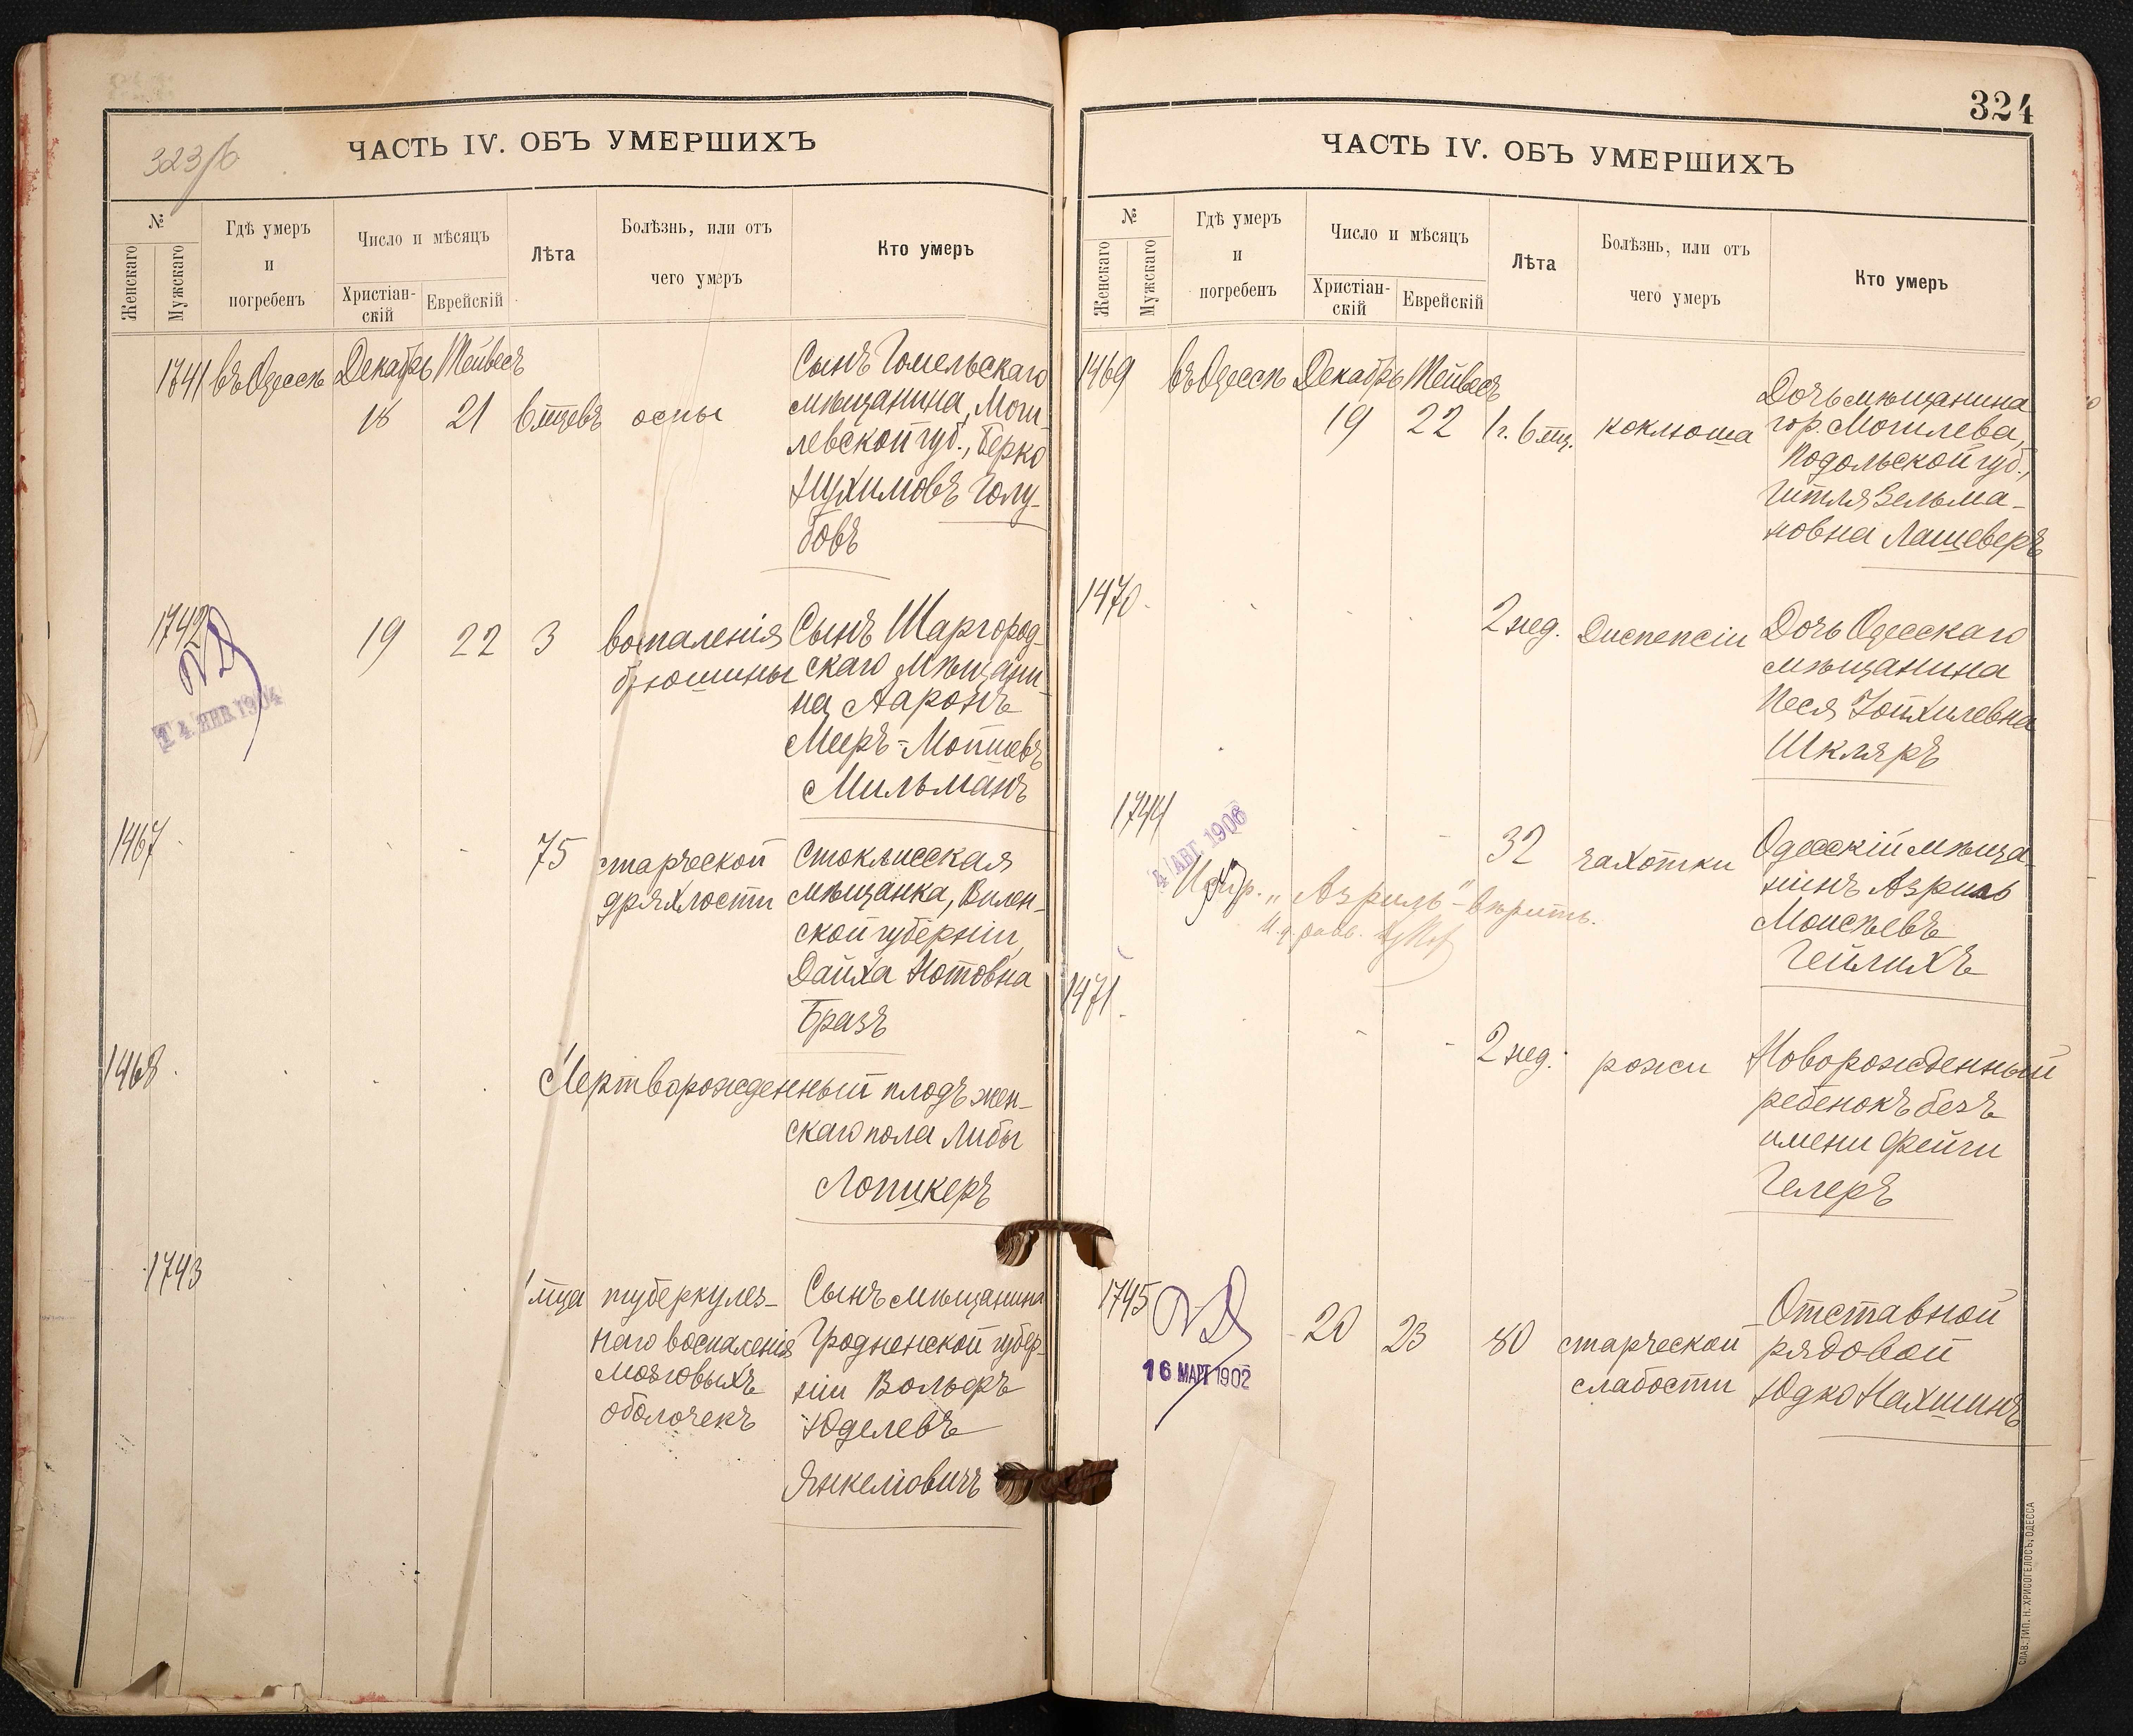 323/б
ЧАСТЬ IV. ОБЪ УМЕРШИХЪ
№
Женскаго
Мужскаго
Гдѣ умеръ
и
погребенъ
Число и мѣсяцъ
Христіан-
скій
Еврейскій
Лѣта
Болѣзнь, или отъ
чего умеръ
Кто умеръ
1741 въ Одессѣ Декабрь Тейвесъ
18 21 6 мцевъ оспы
Сынъ Гомельскаго
мѣщанина, Моги-
левской губ., Берко
Нухимовъ Голу-
бовъ
1742 19 22 3 воспаленія
брюшины
Сынъ Шаргород-
скаго мѣщани-
на Ааронъ
Мееръ-Мотшевъ
Мильманъ
4 ЯНВ. 1904
1467 75 старческой
дряхлости
Стоклисская
мѣщанка, Вилен-
ской губерніи,
Дайха Нотовна
Бразъ
1468 Мертворожденный плодъ жен-
скаго пола Либы
Лопикеръ
1743 1 мца туберкулез-
наго воспаленія
мозговыхъ
оболочекъ
Сынъ мѣщанина
Гродненской губер-
ніи Вольфъ
Юделевъ
Янкеліовичъ
324
ЧАСТЬ IV. ОБЪ УМЕРШИХЪ
№
Женскаго
Мужскаго
Гдѣ умеръ
и
погребенъ
Число и мѣсяцъ
Христіан-
скій
Еврейскій
Лѣта
Болѣзнь, или отъ
чего умеръ
Кто умеръ
1469 въ Одессѣ Декабрь Тейвесъ
19 22 1 г. 6 мц. коклюша
Дочь мѣщанина
гор. Могилева,
Подольской губ.,
Гитля Зельма-
новна Лащеверъ
1470 2 нед. Диспепсіи
Дочь Одесскаго
мѣщанина
Песя Хойхилевна
Шкляръ
1744 32 чахотки
Одесскій мѣща-
нинъ Азриль
Моисѣевъ
Гейлихъ
4 АВГ. 1906
Испр. „Азриль" - вѣрить.
1471 2 нед. рожи
Новорожденный
ребенокъ безъ
имени Фейги
Гелеръ
1745 20 23 80 старческой
слабости
Отставной
рядовой
Юдко Нахшинъ
16 МАРТ 1902
СЛАВ. ТИП. Н. ХРИСОГЕЛОСЪ, ОДЕССА